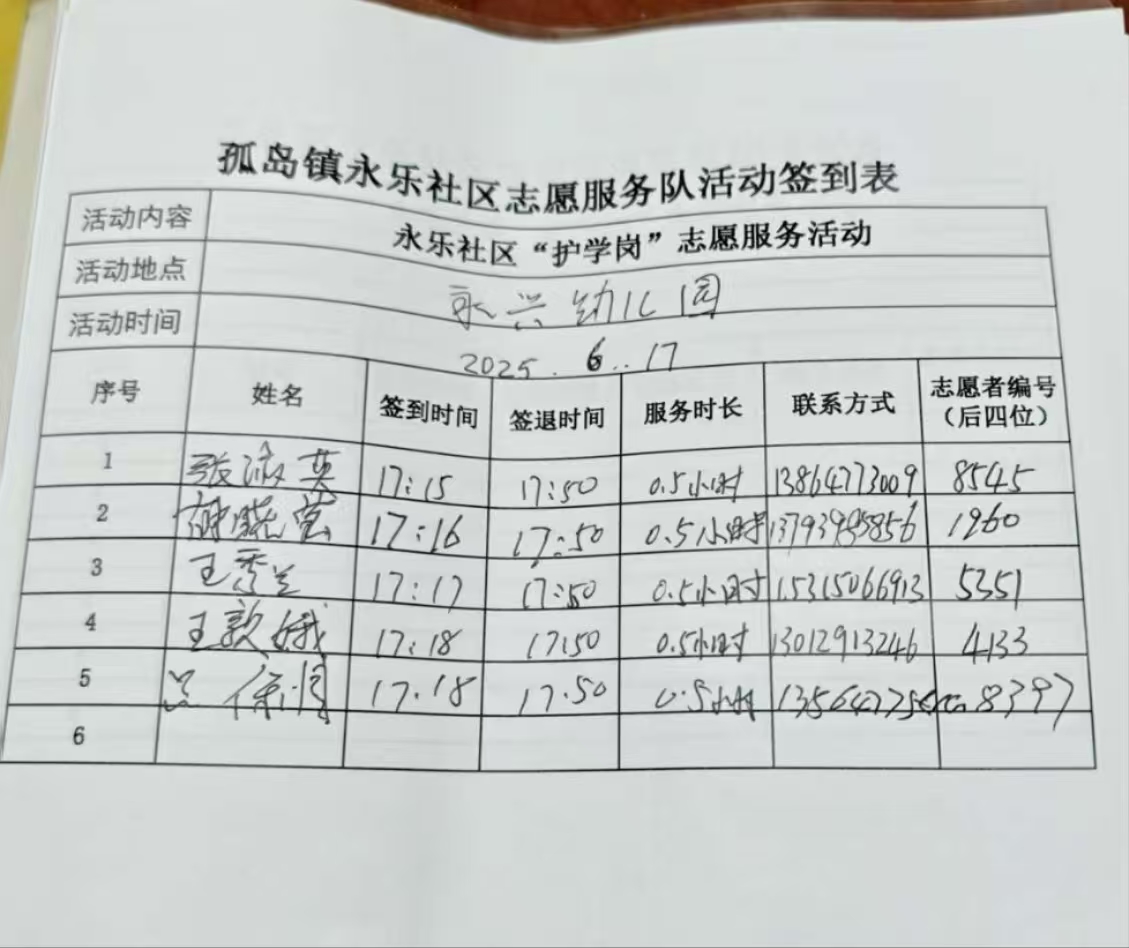 孤岛镇永乐社区志愿服务队活动签到表
活动内容 永乐社区“护学岗”志愿服务活动
活动地点 永兴幼儿园
活动时间 2025.6..17
序号 姓名 签到时间 签退时间 服务时长 联系方式 志愿者编号（后四位）
1 张淑英 17:15 17:50 0.5小时 13864773009 8545
2 薛晓莹 17:16 17:50 0.5小时 1260
3 王秀兰 17:17 17:50 0.5小时 15315066913 5351
4 王敦娥 17:18 17:50 0.5小时 13012913246 4133
5 17.18 17.50 0.5小时 8397
6